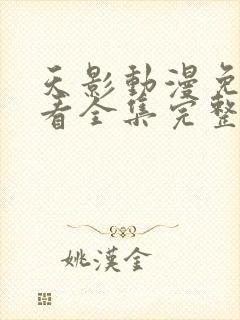 天影動漫免
看全集完整
姚漢金